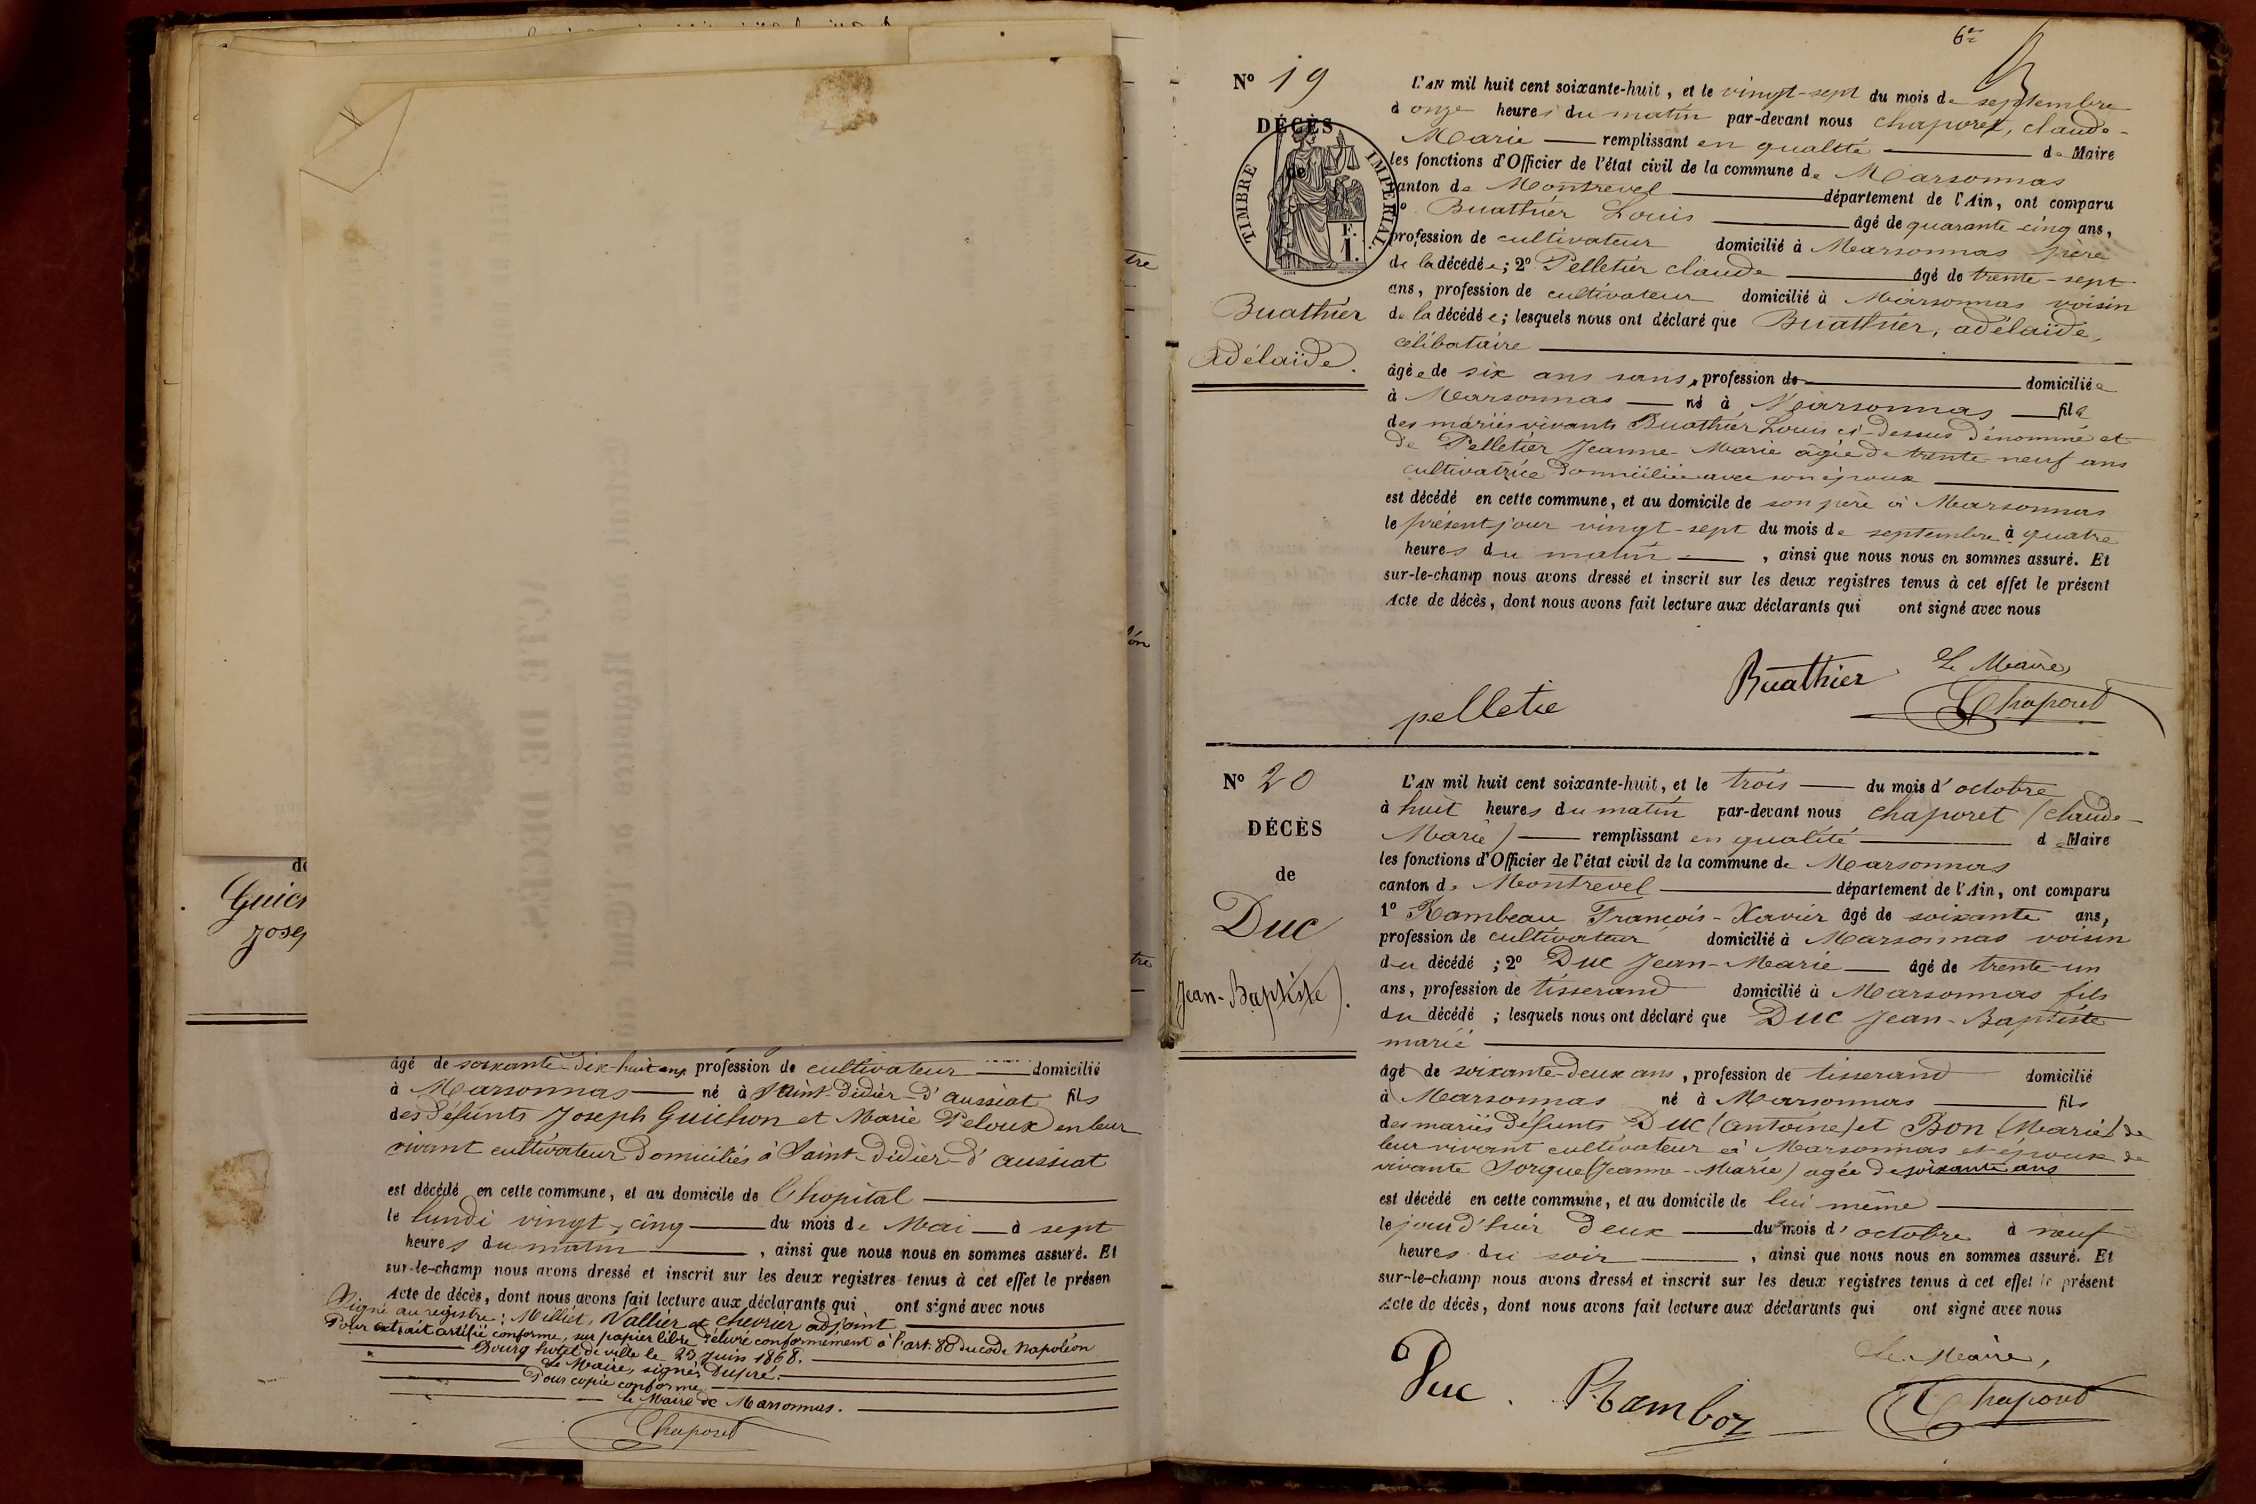 de
Guich
Josep
âgé de soixante-dix-huit ans, profession de cultivateur domicilié
à Marsonnas né à Saint-Didier-d'aussiat fils
des défunts Joseph Guichon et Marie Peloux en leur
vivant cultivateur domiciliés à Saint-Didier-d'aussiat
est décédé en cette commune, et au domicile de l'hopital
le lundi vingt-cinq du mois de Mai à sept
heures du matin, ainsi que nous nous en sommes assuré. Et
sur-le-champ nous avons dressé et inscrit sur les deux registres tenus à cet effet le présen
Acte de décès, dont nous avons fait lecture aux déclarants qui ont signé avec nous
Signé au registre: Milliet, Vallier et chevrier adjoint
Pour extrait certifié conforme, sur papier libre délivré conformément à l'art. 80 du code Napoléon
Bourg hotel de ville le 25 Juin 1868.
Le Maire, signé: Dupré.
Pour copie conforme
le Maire de Marsonnas.
Chaporet
6e
No 19
DÉCÈS
de
TIMBRE IMPÉRIAL
F.
1.
Buathier
Adélaïde.
L'AN mil huit cent soixante-huit, et le vingt-sept du mois de septembre
à onze heures du matin par-devant nous chaporet, claude-
Marie remplissant en qualité de Maire
les fonctions d'Officier de l'état civil de la commune de Marsonnas
canton de Montrevel département de l'Ain, ont comparu
1o Buathier Louis âgé de quarante-cinq ans,
profession de cultivateur domicilié à Marsonnas père
de la décédée; 2o Pelletier claude âgé de trente-sept
ans, profession de cultivateur domicilié à Marsonnas voisin
de la décédée; lesquels nous ont déclaré que Buathier, adélaïde,
célibataire
âgée de six ans sans profession de domiciliée
à Marsonnas né à Marsonnas fille
des mariés vivants Buathier Louis ci-dessus dénommé et
de Pelletier Jeanne-Marie âgée de trente neuf ans
cultivatrice domiciliée avec son époux
est décédé en cette commune, et au domicile de son père à Marsonnas
le présent jour vingt-sept du mois de septembre à quatre
heures du matin, ainsi que nous nous en sommes assuré. Et
sur-le-champ nous avons dressé et inscrit sur les deux registres tenus à cet effet le présent
Acte de décès, dont nous avons fait lecture aux déclarants qui ont signé avec nous
Buathier Le Maire,
pelletie Chaporet
No 20
DÉCÈS
de
Duc
Jean-Baptiste).
L'AN mil huit cent soixante-huit, et le trois du mois d'octobre
à huit heures du matin par-devant nous chaporet (claude-
Marie) remplissant en qualité de Maire
les fonctions d'Officier de l'état civil de la commune de Marsonnas
canton de Montrevel département de l'Ain, ont comparu
1o Rambeau François-Xavier âgé de soixante ans,
profession de cultivateur domicilié à Marsonnas voisin
du décédé; 2o Duc Jean-Marie âgé de trente-un
ans, profession de tisserand domicilié à Marsonnas fils
du décédé; lesquels nous ont déclaré que Duc Jean-Baptiste
marié
âgé de soixante-deux ans, profession de tisserand domicilié
à Marsonnas né à Marsonnas fils
des mariés défunts Duc (antoine) et Bon (Marie) de
leur vivant cultivateur à Marsonnas et époux de
vivante Sorgue (Jeanne-Marie) agée de soixante ans
est décédé en cette commune, et au domicile de lui même
le jour d'hier deux du mois d'octobre à neuf
heures du soir, ainsi que nous nous en sommes assuré. Et
sur-le-champ nous avons dressé et inscrit sur les deux registres tenus à cet effet le présent
Acte de décès, dont nous avons fait lecture aux déclarants qui ont signé avec nous
Le Maire,
Duc. Ramboz Chaporet